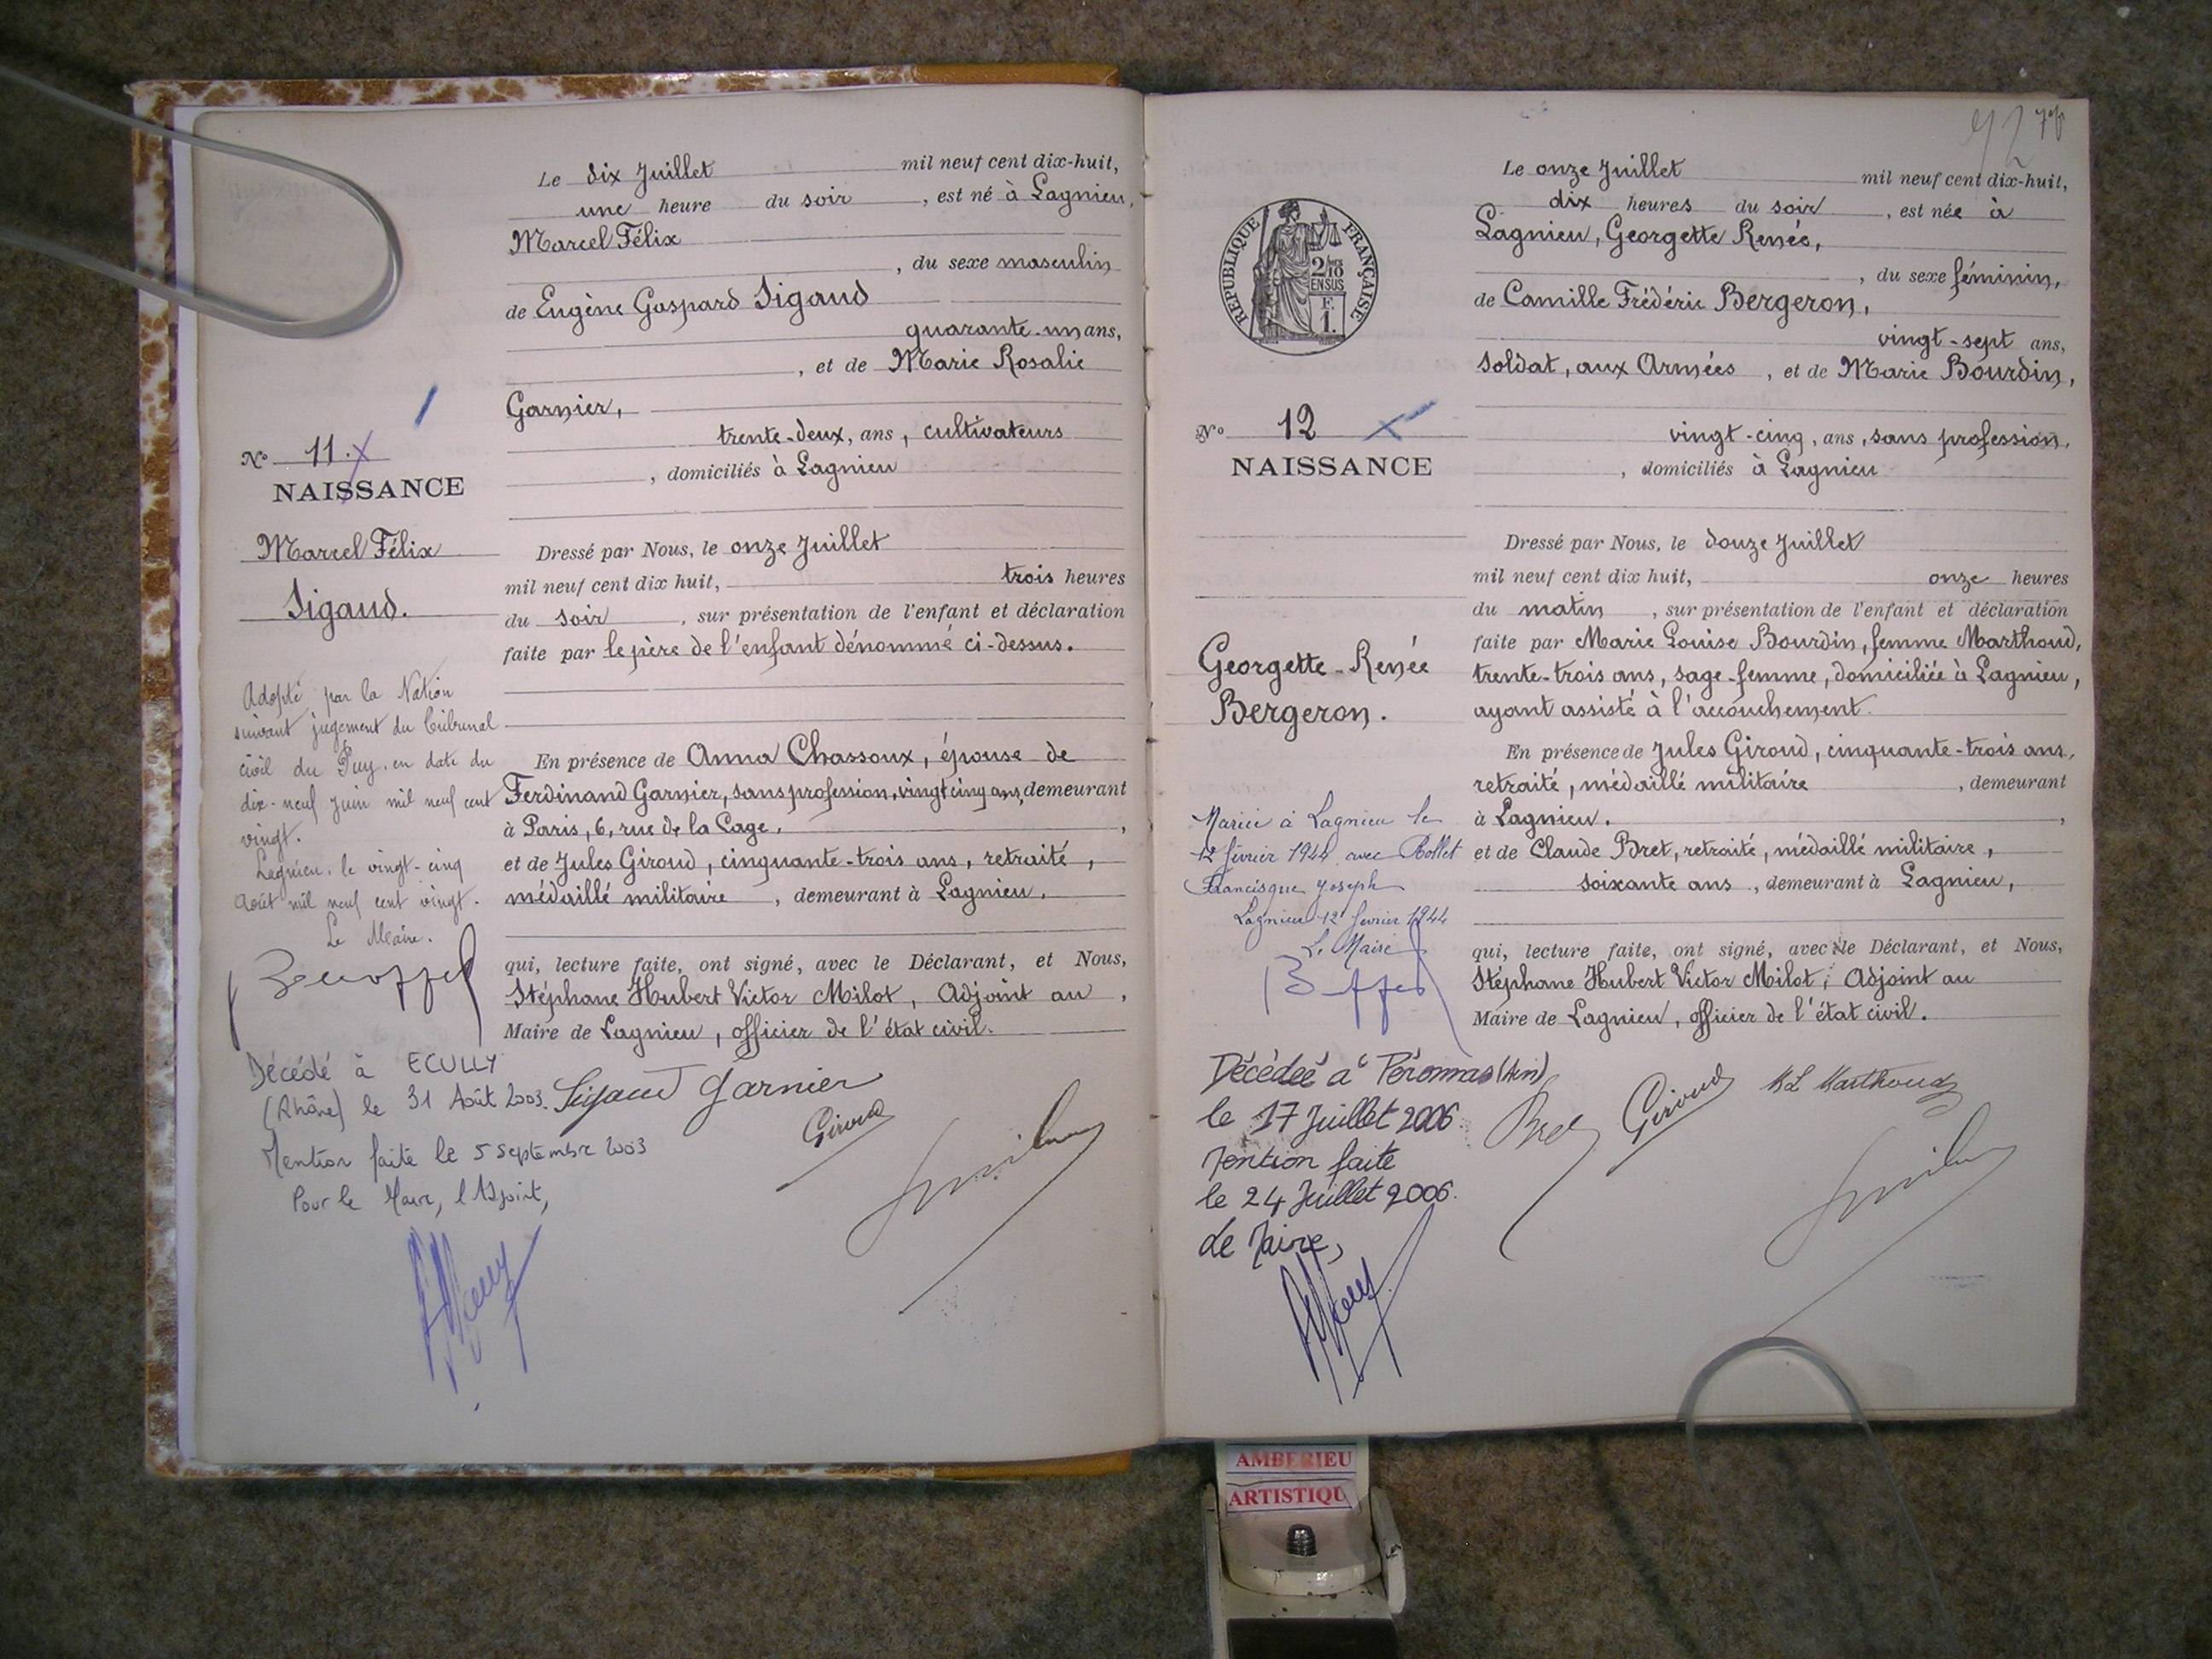 Le dix Juillet mil neuf cent dix-huit,
une heure du soir, est né à Lagnieu,
Marcel Félix
, du sexe masculin
de Eugène Gaspard Sigaud
quarante-un ans,
, et de Marie Rosalie
Garnier,
trente-deux, ans, cultivateurs
, domiciliés à Lagnieu
N° 11.
NAISSANCE
Marcel Félix
Sigaud.
Dressé par Nous, le onze Juillet
mil neuf cent dix huit, trois heures
du soir, sur présentation de l'enfant et déclaration
faite par le père de l'enfant dénommé ci-dessus.
Adopté par la Nation
suivant jugement du tribunal
civil du Puy, en date du
dix-neuf Juin mil neuf cent
vingt.
Lagnieu, le vingt-cinq
Août mil neuf cent vingt.
Le Maire.
En présence de Anna Chassoux, épouse de
Ferdinand Garnier, sans profession, vingt cinq ans, demeurant
à Paris, 6, rue de la Cage,
et de Jules Giroud, cinquante-trois ans, retraité,
médaillé militaire, demeurant à Lagnieu,
qui, lecture faite, ont signé, avec le Déclarant, et Nous,
Stéphane Hubert Victor Milot, Adjoint au,
Maire de Lagnieu, officier de l'état civil.
Décédé à ECULLY
(Rhône) le 31 Août 2003.
Mention faite le 5 Septembre 2003
Pour le Maire, l'Adjoint,
Sigaud Garnier
Giroud
72
Le onze Juillet mil neuf cent dix-huit,
dix heures du soir, est née à
Lagnieu, Georgette Renée,
, du sexe féminin,
de Camille Frédéric Bergeron,
vingt-sept ans,
Soldat, aux Armées, et de Marie Bourdin,
vingt-cinq, ans, sans profession,
, domiciliés à Lagnieu
REPUBLIQUE FRANÇAISE
2/10
EN SUS
F.
1.
N° 12
NAISSANCE
Georgette-Renée
Bergeron.
Dressé par Nous, le douze Juillet
mil neuf cent dix huit, onze heures
du matin, sur présentation de l'enfant et déclaration
faite par Marie Louise Bourdin, femme Marthoud,
trente-trois ans, sage-femme, domiciliée à Lagnieu,
ayant assisté à l'accouchement.
En présence de Jules Giroud, cinquante-trois ans,
retraité, médaillé militaire, demeurant
à Lagnieu,
et de Claude Bret, retraité, médaillé militaire,
soixante ans, demeurant à Lagnieu,
qui, lecture faite, ont signé, avec le Déclarant, et Nous,
Stéphane Hubert Victor Milot, Adjoint au
Maire de Lagnieu, officier de l'état civil.
Mariée à Lagnieu le
12 février 1944 avec Rollet
Francisque Joseph
Lagnieu 12 février 1944
Le Maire
Décédée à Péronnas (Ain)
le 17 Juillet 2006.
Mention faite
le 24 Juillet 2006.
Le Maire,
Bret Giroud ML Marthoud
AMBERIEU
ARTISTIQU